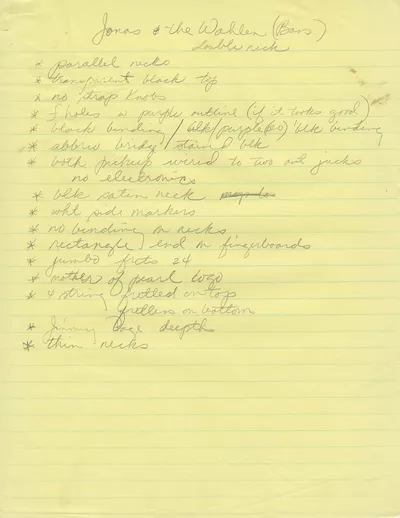 Jonas & the Wahlen (Bass)
double neck
* parallel necks
* transparent black top
* no strap knobs
* f holes w purple outline (if it looks good)
* black binding / blk/purple /blk binding
* abbrev bridge / stained blk
* both pickup wired to two out jacks
no electronics
* blk satin neck
* wht side markers
* no binding on necks
* rectangle end on fingerboards
* jumbo frets 24
* mother of pearl logo
* 4 string fretted on top
fretless on bottom
* Jimmy Page depth
* thin necks